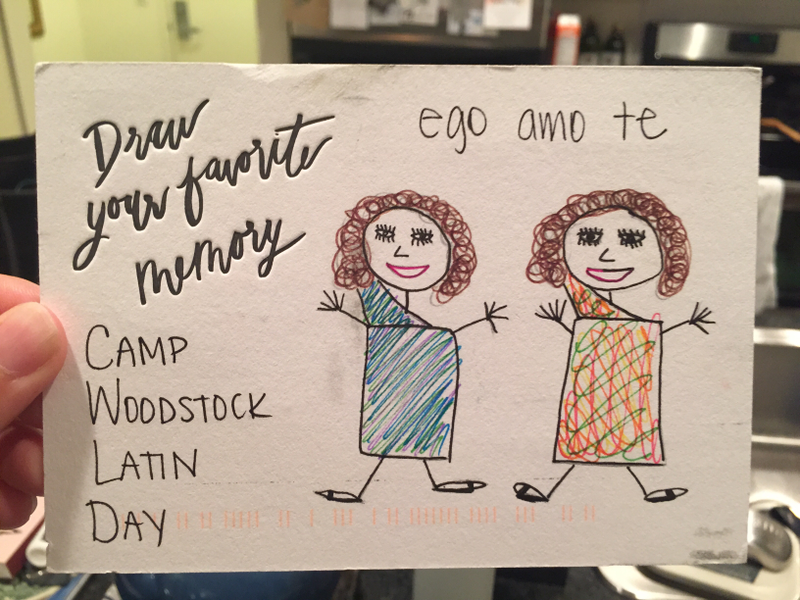 Draw
your favorite
memory
ego amo te
CAMP
WOODSTOCK
LATIN
DAY